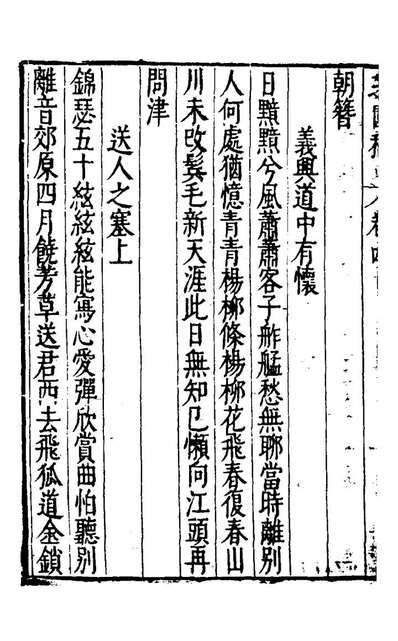 朝簪
義興道中有懷
日黯黯兮風蕭蕭客子舴艋愁無聊當時離別
人何處猶憶青青楊柳條楊柳花飛春復春山
川未改鬂毛新天涯此日無知己懶向江頭再
問津
送人之塞上
錦瑟五十絃絃絃能寫心愛彈欣賞曲怕聽別
離音郊原四月饒芳草送君西去飛狐道金鎖